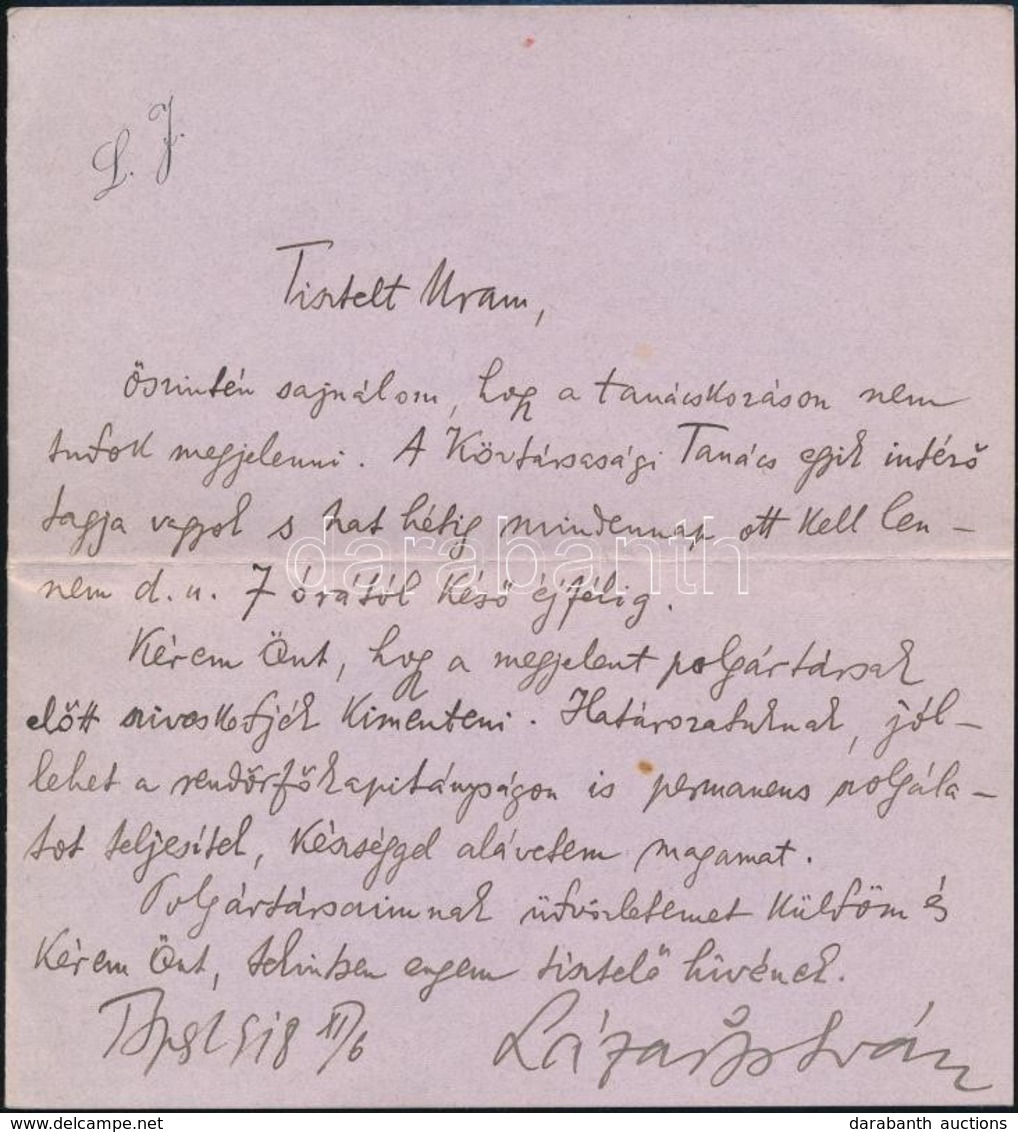 L. J.
Tisztelt Uram,
őszintén sajnálom, hogy a tanácskozáson nem
tudok megjelenni. A Köztársasági Tanács egyik intéző
tagja vagyok s hat hétig mindennap ott kell len-
nem d. u. 7 órától késő éjfélig.
Kérem Önt, hogy a megjelent polgártársak
előtt sziveskedjék kimenteni. Határozatuknak, jól-
lehet a rendőrfőkapitányságon is permanens szolgála-
tot teljesítek, készséggel alávetem magamat.
Polgártársaimnak üdvözletemet küldöm és
kérem Önt, tekintsen engem tisztelő hívének.
Bpest 918 XI/6
Lázár István
darabanth
© darabanth auctions
www.darabanth.com